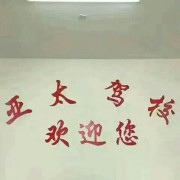 亚太驾校
欢迎您